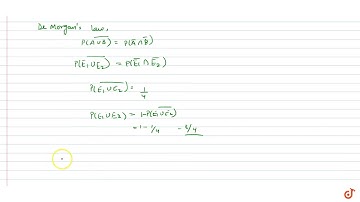 De Morgan's law,
P(A̅ ̅∪̅ ̅B̅) = P(A̅ ∩ B̅)
P(E̅₁̅ ̅∪̅ ̅E̅₂̅) = P(E̅₁ ∩ E̅₂)
P(E̅₁̅ ̅∪̅ ̅E̅₂̅) = 1/4
P(E₁∪E2) = 1-P(E̅₁̅ ̅∪̅ ̅E̅₂̅)
= 1 - 1/4 - 3/4